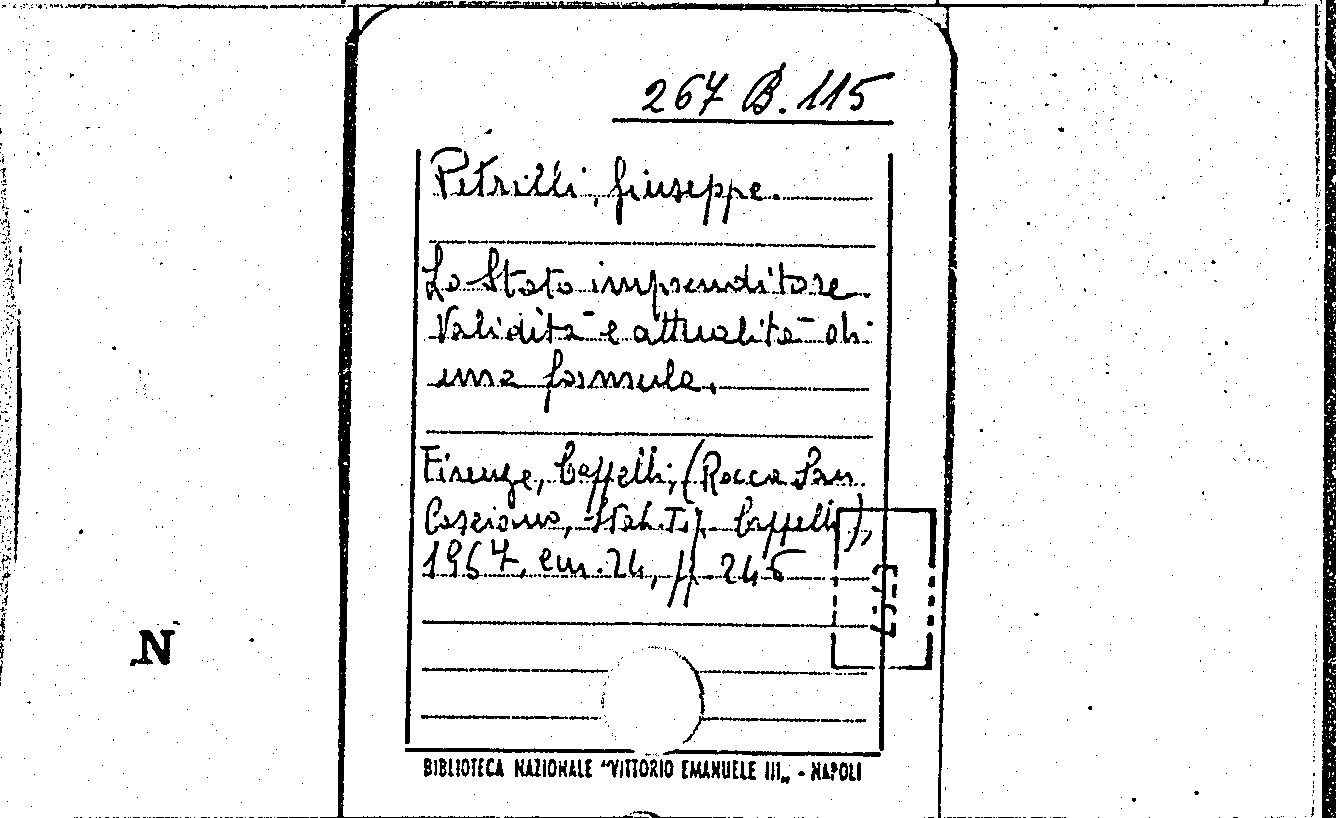 267 B. 115
Petrilli, Giuseppe.
Lo Stato imprenditore
Validità e attualità di
una formula.
Firenze, Cappelli, (Rocca San
Casciano, Stab. Tip. Cappelli),
1967, cm. 24, pp. 245
N
BIBLIOTECA NAZIONALE "VITTORIO EMANUELE III„ - NAPOLI